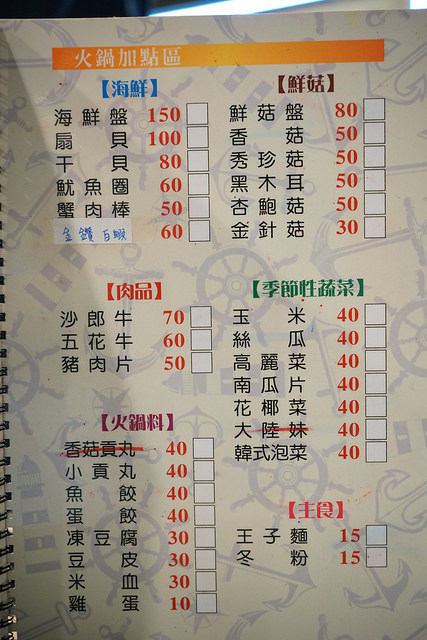 火鍋加點區
【海鮮】
海鮮盤 150
扇貝 100
干貝 80
魷魚圈 60
蟹肉棒 50
金鑽白蝦 60
【鮮菇】
鮮菇盤 80
香菇 50
秀珍菇 50
黑木耳 50
杏鮑菇 50
金針菇 30
【肉品】
沙郎牛 70
五花牛 60
豬肉片 50
【季節性蔬菜】
玉米 40
絲瓜 40
高麗菜 40
南瓜片 40
花椰菜 40
大陸妹 40
韓式泡菜 40
【火鍋料】
香菇貢丸 40
小貢丸 40
魚餃 40
蛋餃 40
凍豆腐 30
豆皮 30
米血 30
雞蛋 10
【主食】
王子麵 15
冬粉 15